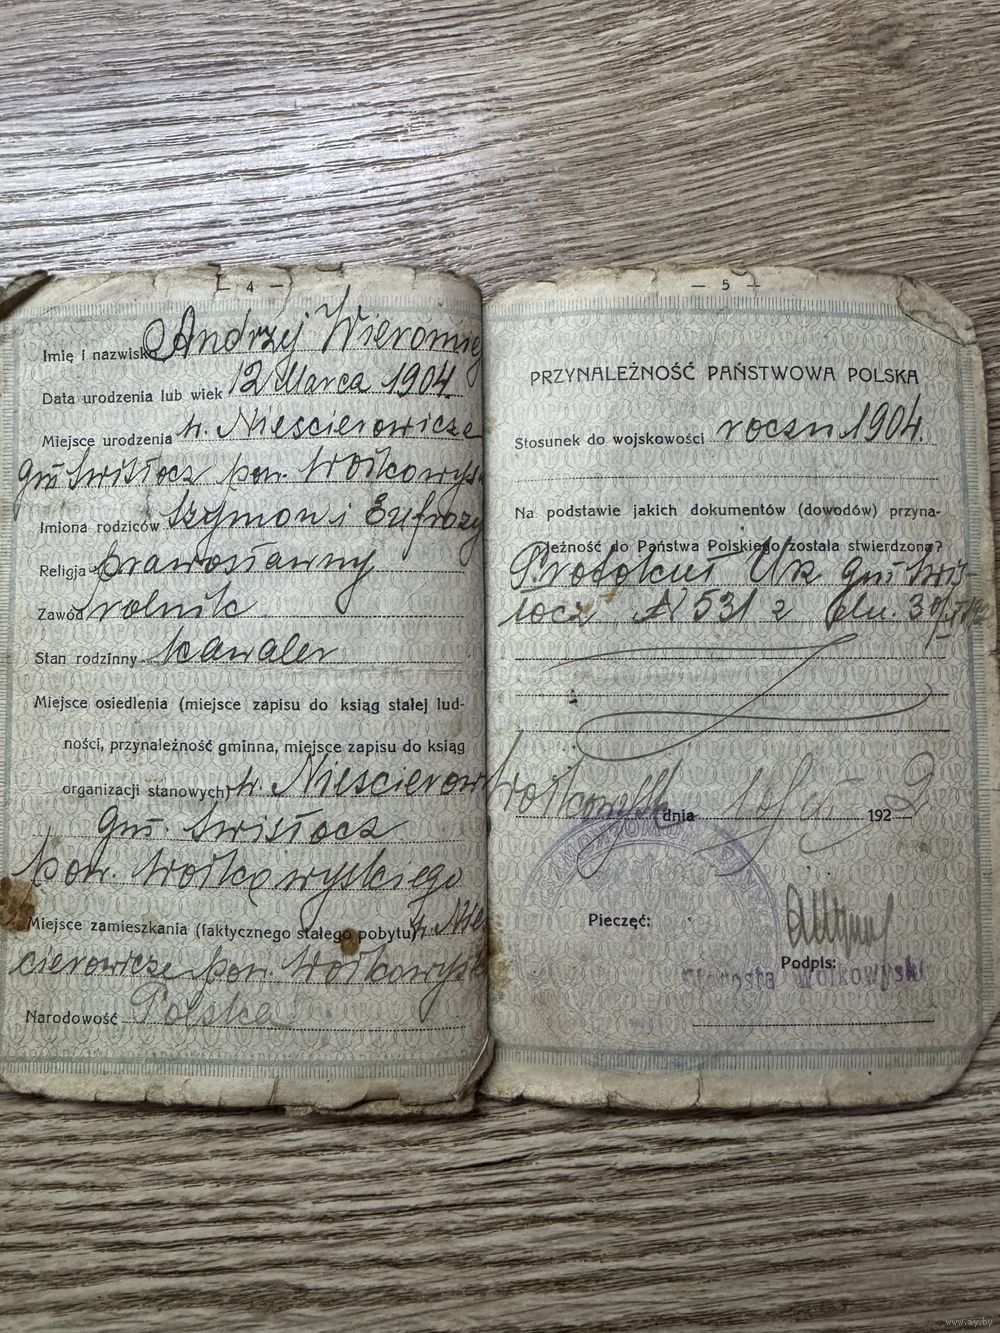 — 4 —
Imię i nazwisko Andrzej Wieromiej
Data urodzenia lub wiek 12 Marca 1904.
Miejsce urodzenia w. Nieścierowicze
gm. Świsłocz pow. Wołkowysk
Imiona rodziców Szymon i Eufrozy
Religja prawosławny
Zawód rolnik
Stan rodzinny kawaler
Miejsce osiedlenia (miejsce zapisu do ksiąg stałej lud-
ności, przynależność gminna, miejsce zapisu do ksiąg
organizacji stanowych) w. Nieścierow
gm. Świsłocz
pow. Wołkowyskiego
Miejsce zamieszkania (faktycznego stałego pobytu) w. Nie
ścierowicze pow. Wołkowysk
Narodowość Polska
— 5 —
PRZYNALEŻNOŚĆ PAŃSTWOWA POLSKA
Stosunek do wojskowości roczn 1904.
Na podstawie jakich dokumentów (dowodów) przyna-
leżność do Państwa Polskiego została stwierdzona?
Protokuł Urz gm. Świs-
łocz N 531 z dn. 30
Wołkowysk dnia 192
Pieczęć:
Podpis:
Starosta Wołkowyski
www.ay.by